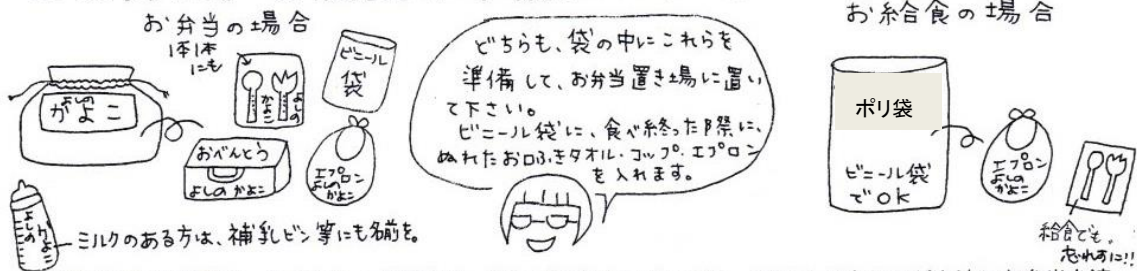 お弁当の場合
1本1本
にも
ビニール
袋
よしの
かよこ
かよこ
よしの
おべんとう
よしの かよこ
エプロン
よしの
かよこ
よしの
かよこ
ミルクのある方は、補乳ビン等にも名前を。
どちらも、袋の中にこれらを
準備して、お弁当置き場に置い
て下さい。
ビニール袋に、食べ終った際に、
ぬれたお口ふきタオル・コップ・エプロン
を入れます。
お給食の場合
ポリ袋
ビニール袋
でOK
エプロン
よしの
かよこ
給食でも。
忘れずに!!